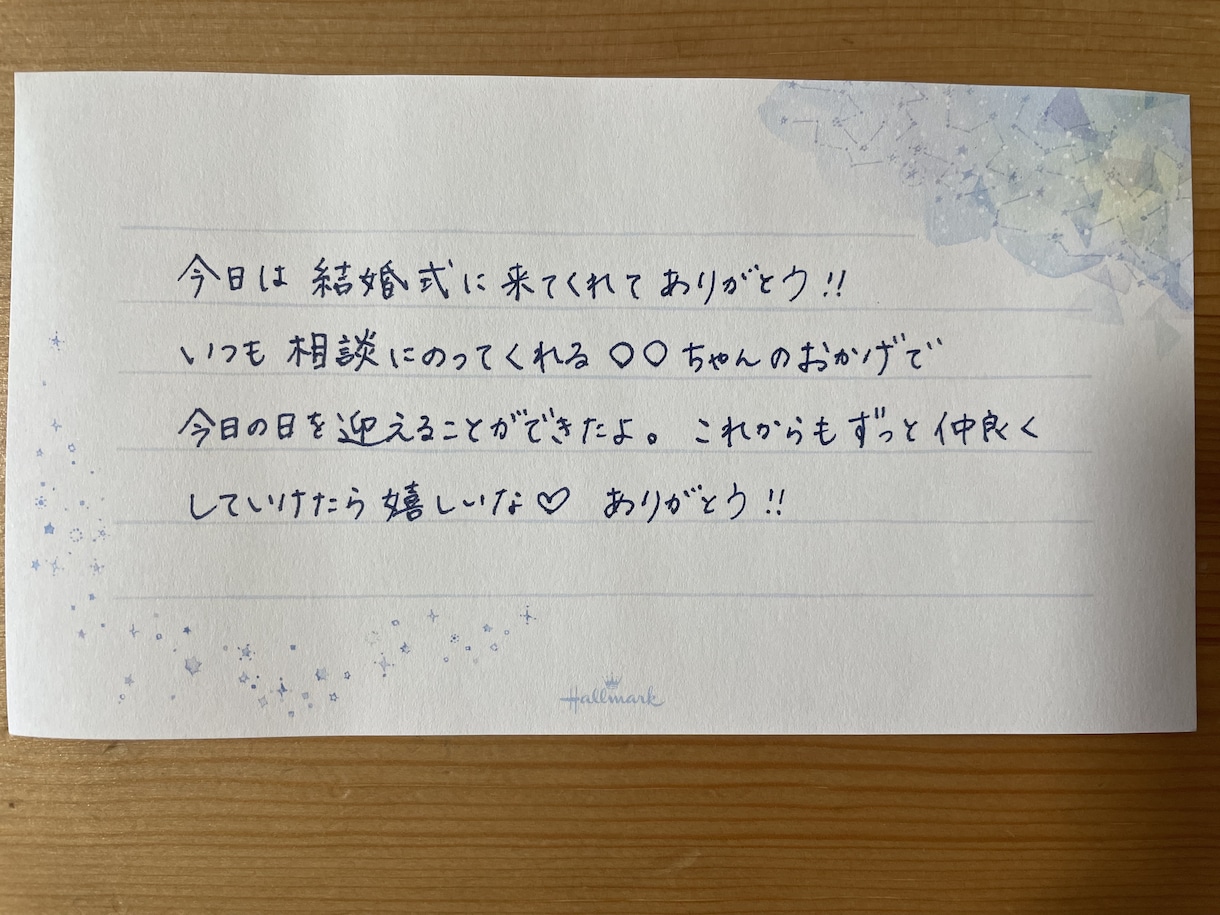 今日は 結婚式に 来てくれて ありがとう!!
いつも 相談にのってくれる ○○ちゃんのおかげで
今日の日を迎えることができたよ。 これからもずっと仲良く
していけたら 嬉しいな♡ ありがとう!!
Hallmark